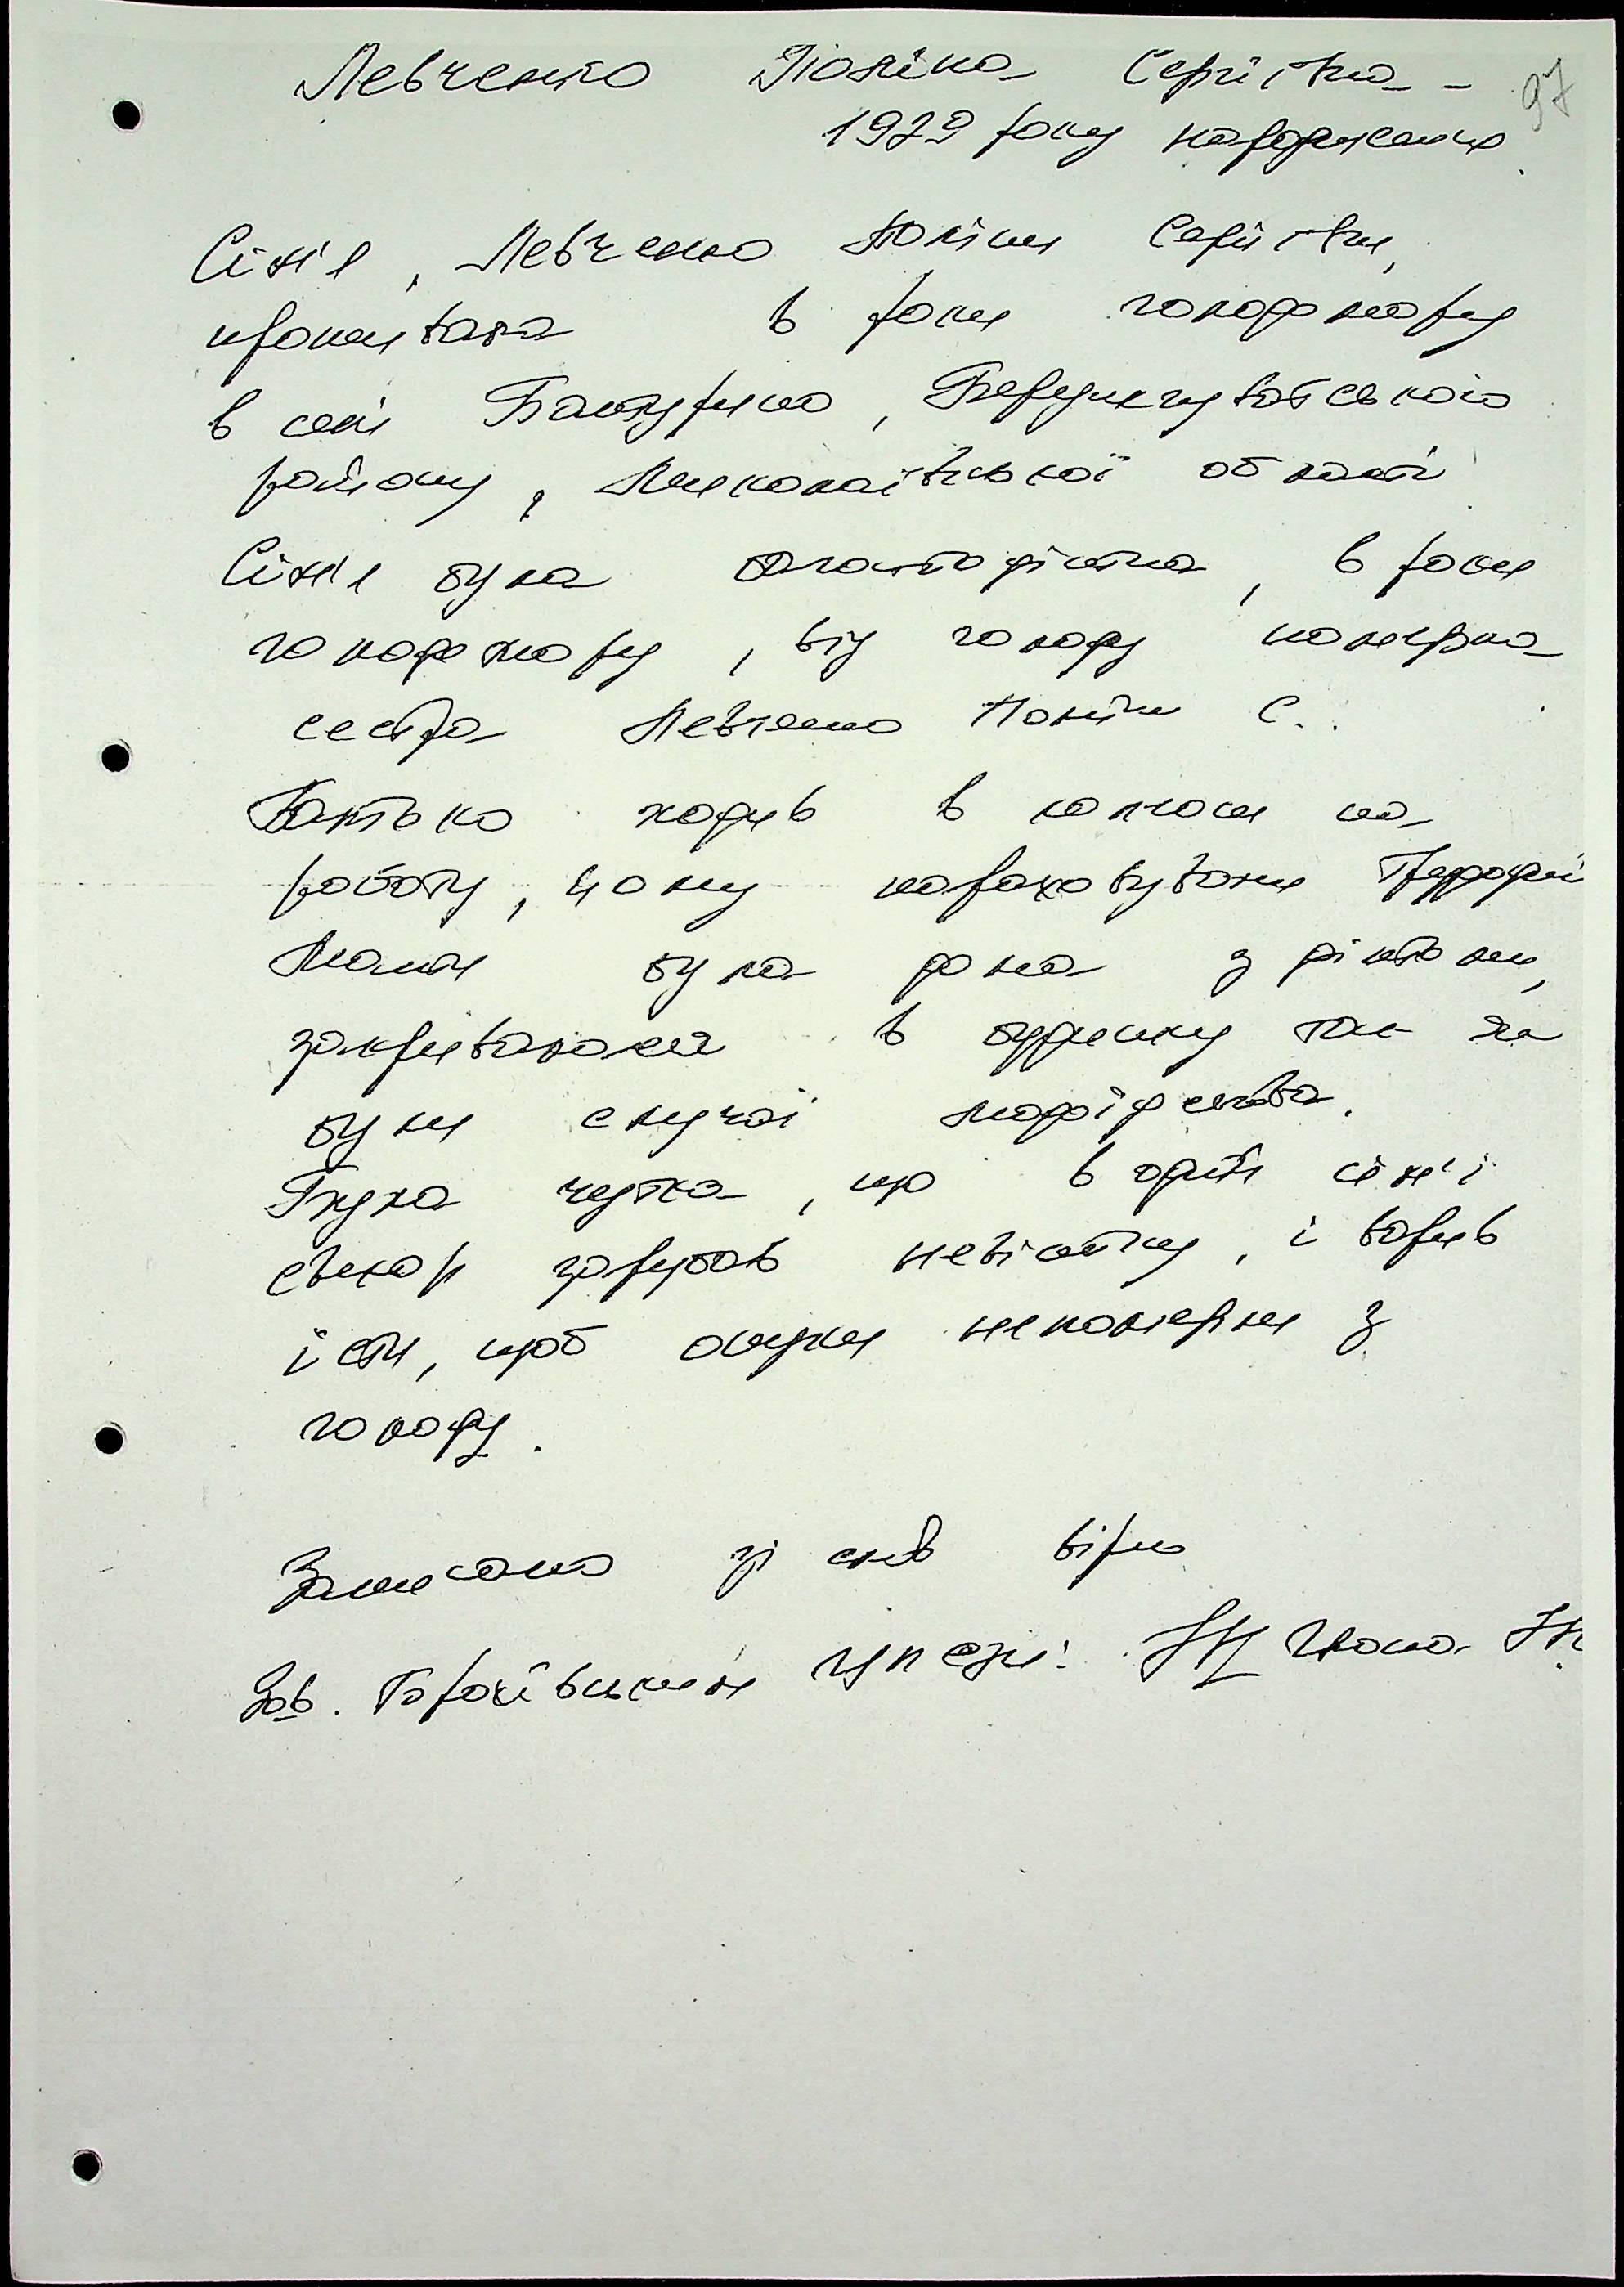 Левченко Поліна Сергіївна -
97
1929 року народження.
Сім'я, Левченко Поліни Сергіївни,
проживала в роки голодомору
в селі Бантурино, Березнегуватського
району, Миколаївської області.
Сім'я була багатодітна, в роки
голодомору, від голоду померла
сестра Левченко Поліни С..
Батько ходив в колгосп на
роботу, йому нараховували трудодні
Мати була дома з дітьми,
закривалася в будинку так як
були случаї людоїдства.
Була чутка, що в одній сім'ї
свекор зарубав невістку, і варив
їсти, щоб онуки не померли з
голоду.
Записано зі слів вірно
Зав. Горохівським сул сзди: